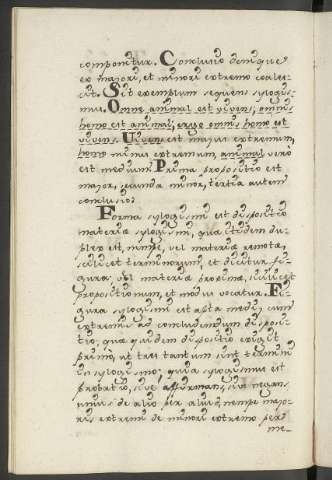 componitur. Conclusio denique
ex majori, et minori extremo coales-
cit. Sit exemplum sequens sylogis-
mus. Omne animal est vivens, omnis
homo est animal, ergo omnis homo est
vivens. Vivens est majus extremum,
homo minus extremum, animal vero
est medium. Prima propositio est
major, secunda minor, tertia autem
conclusio.
Forma sylogismi est dispositio
materiæ sylogismi, quæ itidem du-
plex est, nimpe, vel materiæ remotæ,
scilicet terminorum, et dicitur fi-
gura; vel materiæ proximæ, scilicet
propositionum, et modus vocatur. Fi-
gura sylogismi est apta medij cum
extremis ad concludendum disposi-
tio, quæ quidem dispositio exigit
primo, ut tres tantum sint termini
in sylogismo; quia sylogismus est
probatio, sive affirmans, sive negans
unius de alio per aliud, nempe majo-
ris extremi de minori extremo per
me-